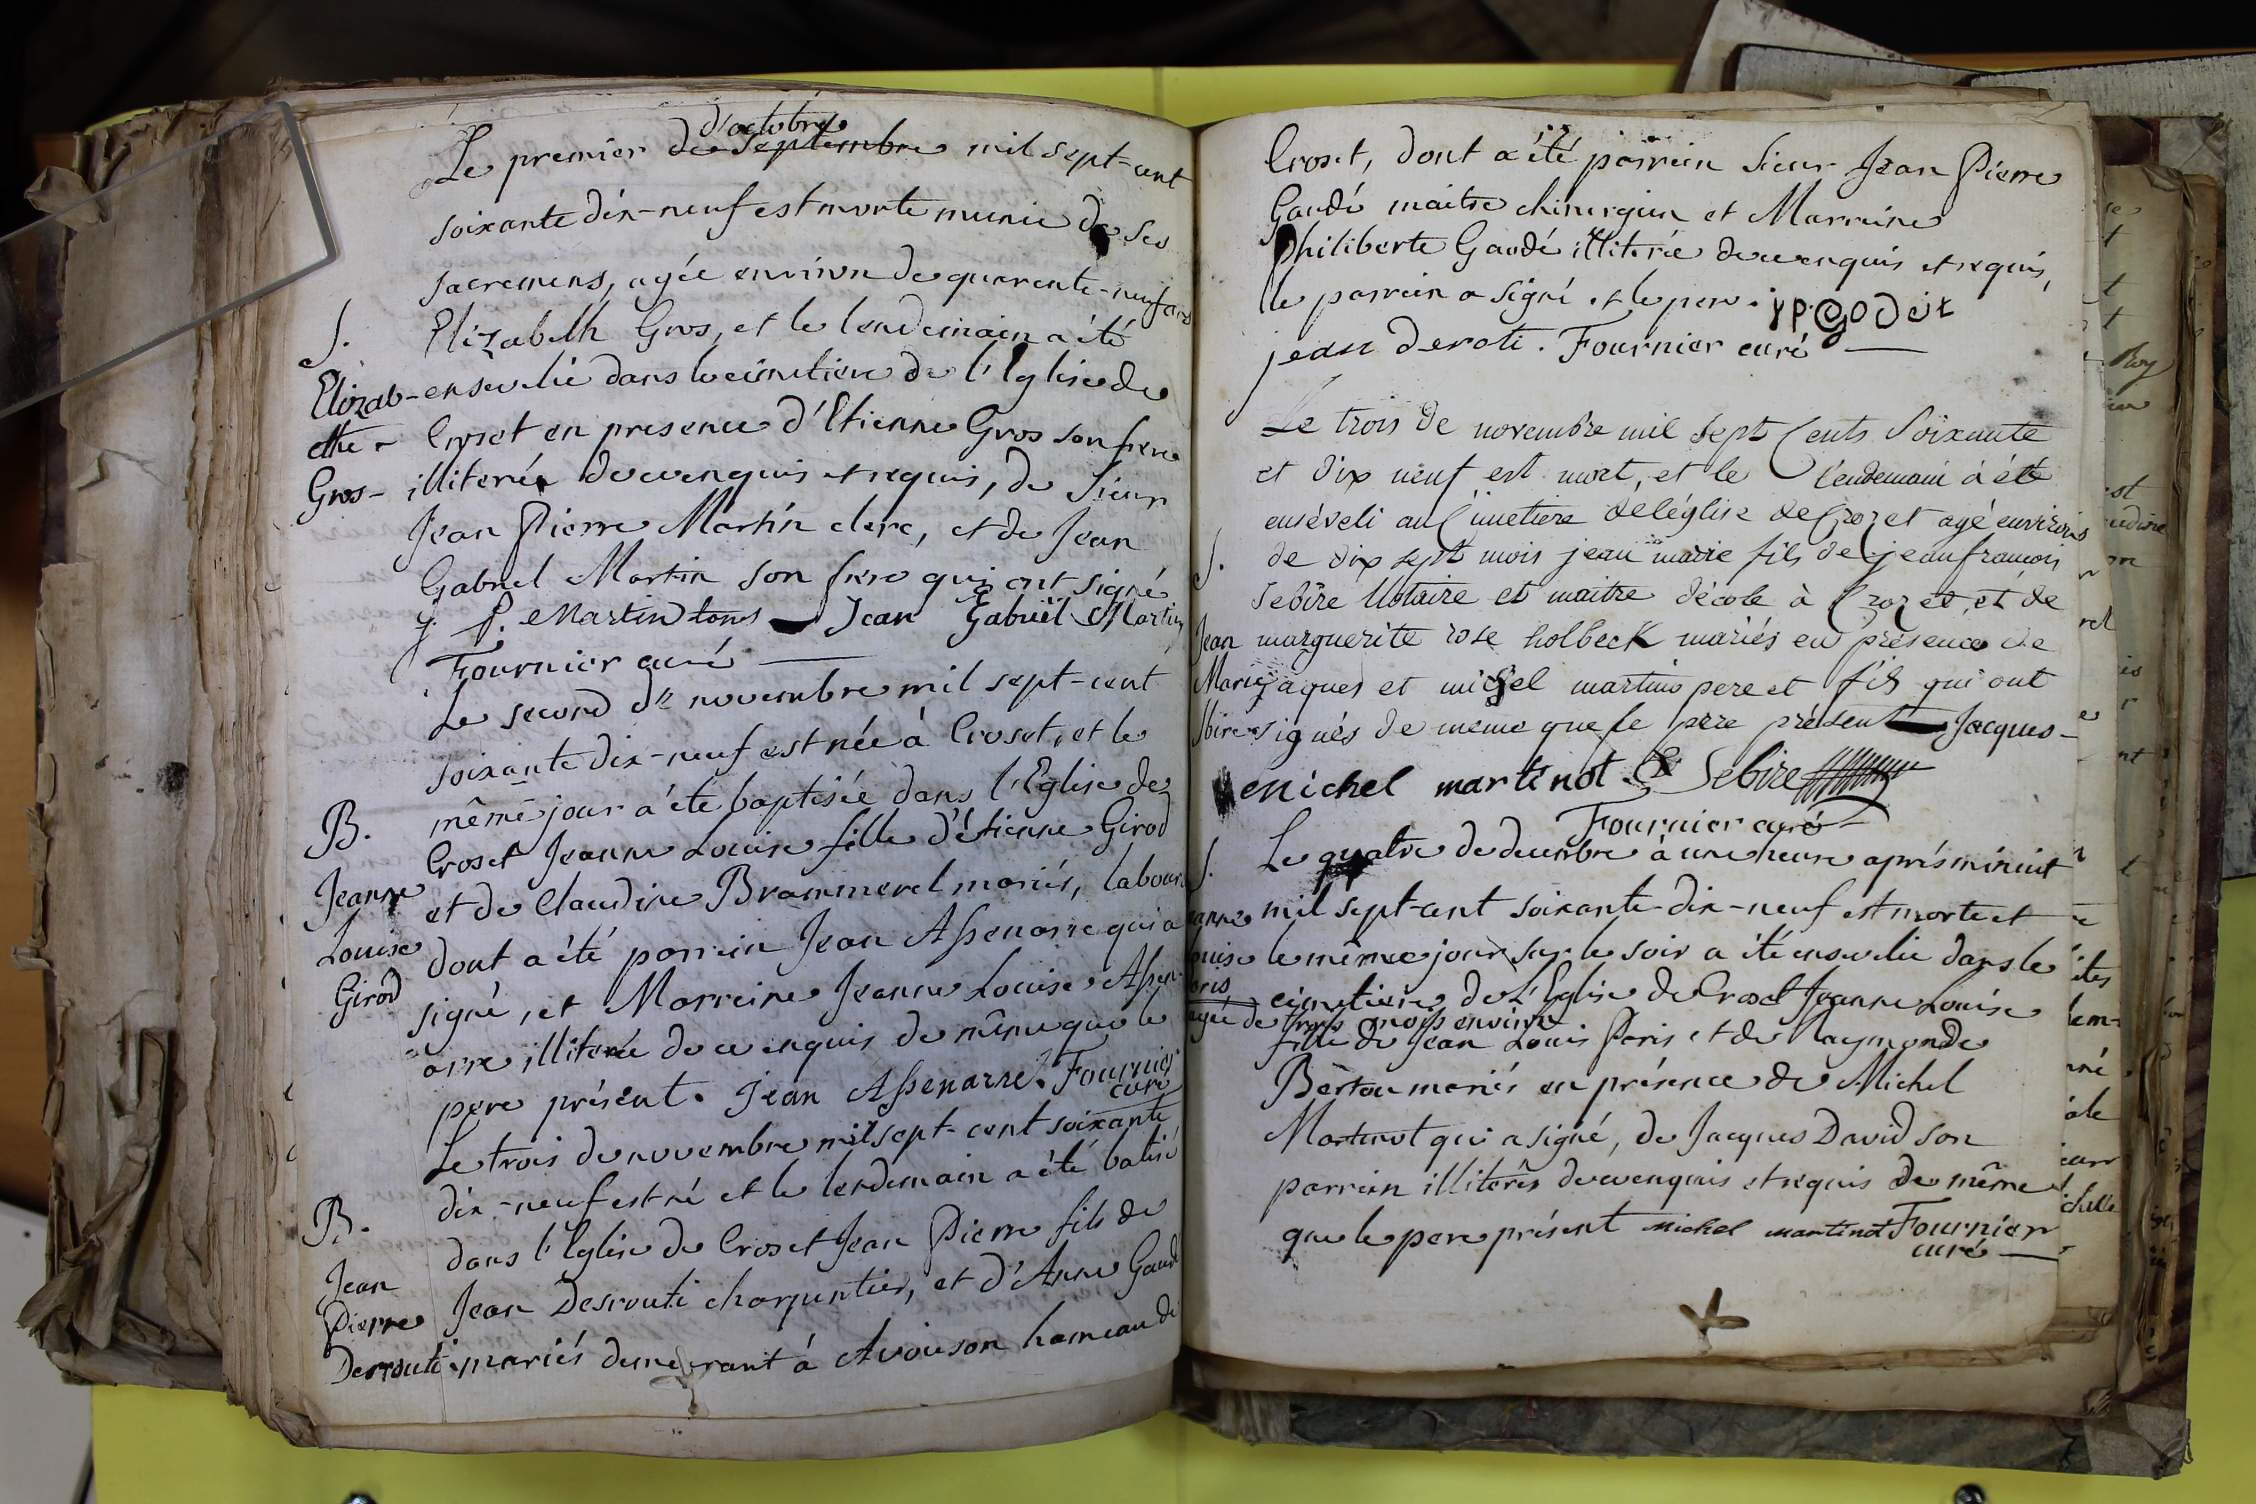 d'octobre
Le premier de Septembre mil sept-cent
soixante dix-neuf est morte munie de ses
sacremens, agée environ de quarente-neuf ans
S.
Elizabelh Gros, et le lendemain a été
Elizab- ensevelie dans le cimetiere de l'Eglise de
ethe Croset en presence d'Etienne Gros son frere
Gros- illiterée de ce enquis et requis, de Sieur
Jean Pierre Martin clerc, et de Jean
Gabriel Martin son frere qui ont signé
j. p. Martin tons Jean Gabriel Martin
Fournier curé
Le second de novembre mil sept-cent
soixante dix-neuf est née à Croset, et le
même jour a été baptisée dans l'Eglise de
B.
Croset Jeanne Louise fille d'étienne Girod
Jeanne et de Claudine Brammerel mariés, labour
Louise dont a été parrein Jean Assenarre qui a
Girod signé, et Marreine Jeanne Louise Assen-
arre illiterée de ce enquis de même que le
pere présent. Jean Assenarre. Fournier
curé
Le trois de novembre mil sept-cent soixante
dix-neuf est né et le lendemain a été batisé
B.
dans l'Eglise de Croset Jean Pierre fils de
Jean
Pierre Jean Desrouti charpentier, et d'Anne Gaudé
Derrouti mariés demeurant á Avouson hameau de
Croset, dont a été parrein Sieur Jean Pierre
Gaudé maitre chirurgien et Marreine
Philiberte Gaudé illiterée de ce enquis et requis,
le parrein a signé et le pere. j p. Godet
jean deroti. Fournier curé
Le trois de novembre mil sept Cents Soixante
et dix neuf est mort, et le lendemain à été
enséveli au Cimetiere de léglise de Crozet agé environs
S.
de dix sept mois jean marie fils de jean francois
Sebire Notaire et maitre décole à Crozet, et de
Jean marguerite rose holbeck mariés en présence de
Marie jaques et michel martino pere et fils qui ont
Sbire signés de meme que le pere présent Jacques-
Michel martinot Sebire
Fournier curé
S. Le quatre de decembre à une heure aprés minuit
mil sept-cent soixante-dix-neuf est morte et
le même jour sur le soir a été ensevelie dans le
cimetiere de l'Eglise de Croset Jeanne Louise
agée de trois mois environ
fille de Jean Louis Paris et de Raymonde
Bertou mariés en présence de Michel
Martinot qui a signé, de Jacques David son
parrein illiterés de ce enquis et requis de même
que le pere présent michel martinot Fournier
curé